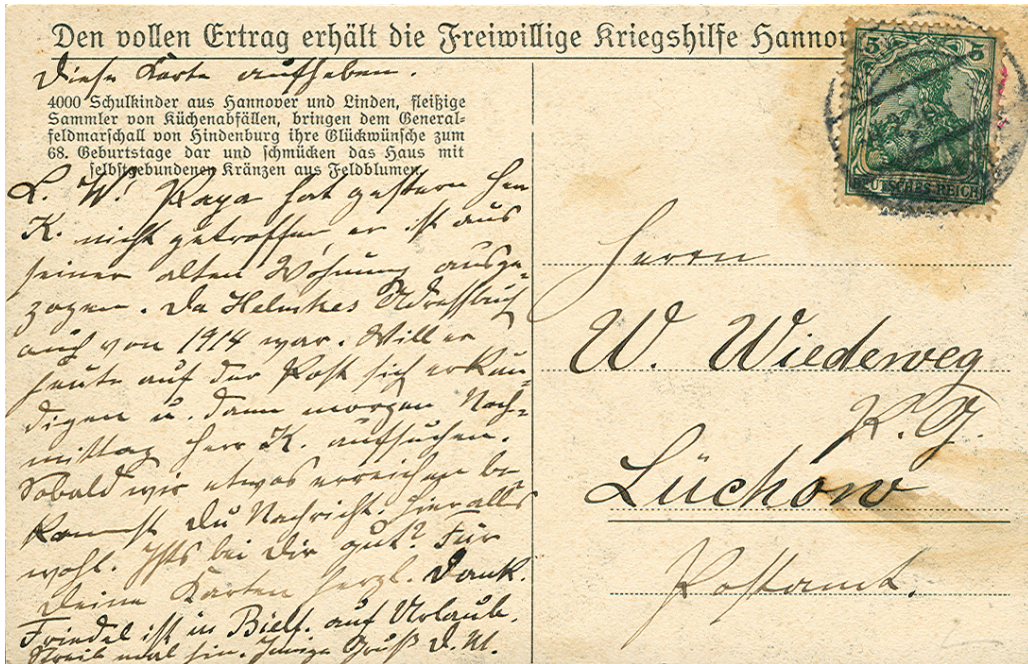 Den vollen Ertrag erhält die Freiwillige Kriegshilfe Hannov
Diese Karte aufheben.
4000 Schulkinder aus Hannover und Linden, fleißige
Sammler von Küchenabfällen, bringen dem General-
feldmarschall von Hindenburg ihre Glückwünsche zum
68. Geburtstage dar und schmücken das Haus mit
selbstgebundenen Kränzen aus Feldblumen.
L. W! Papa hat gestern Herr
K. nicht getroffen, er ist aus
seiner alten Wohnung ausge-
zogen. Da Helmkes Adreßbuch
auch von 1914 war. Will er
heute auf der Post sich erkun-
digen u. dann morgen Nach-
mittag Herr K. aufsuchen.
Sobald wir etwas erreichen be-
kommst Du Nachricht. Hier alles
wohl. Ists bei Dir gut? Für
Deine Karten herzl. Dank.
Friedel ist in Bielf. auf Urlaub.
Schreib mal hin. Innige Grüß D. M.
5 5
DEUTSCHES REICH
Herrn
W. Wiedeweg
K. G.
Lüchow
Postamt.